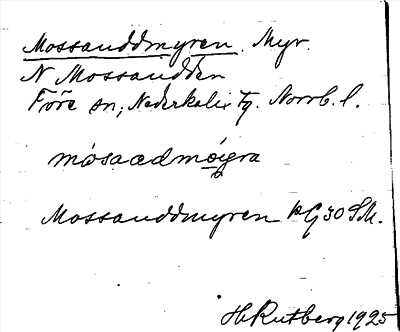 Mossanddmyren. Myr.
N Mossandden
Töre sn; Nederkalix tg. Norrb. l.
mósaadmøigra
Mossanddmyren kG 30 S.M.
H Rutberg 1925